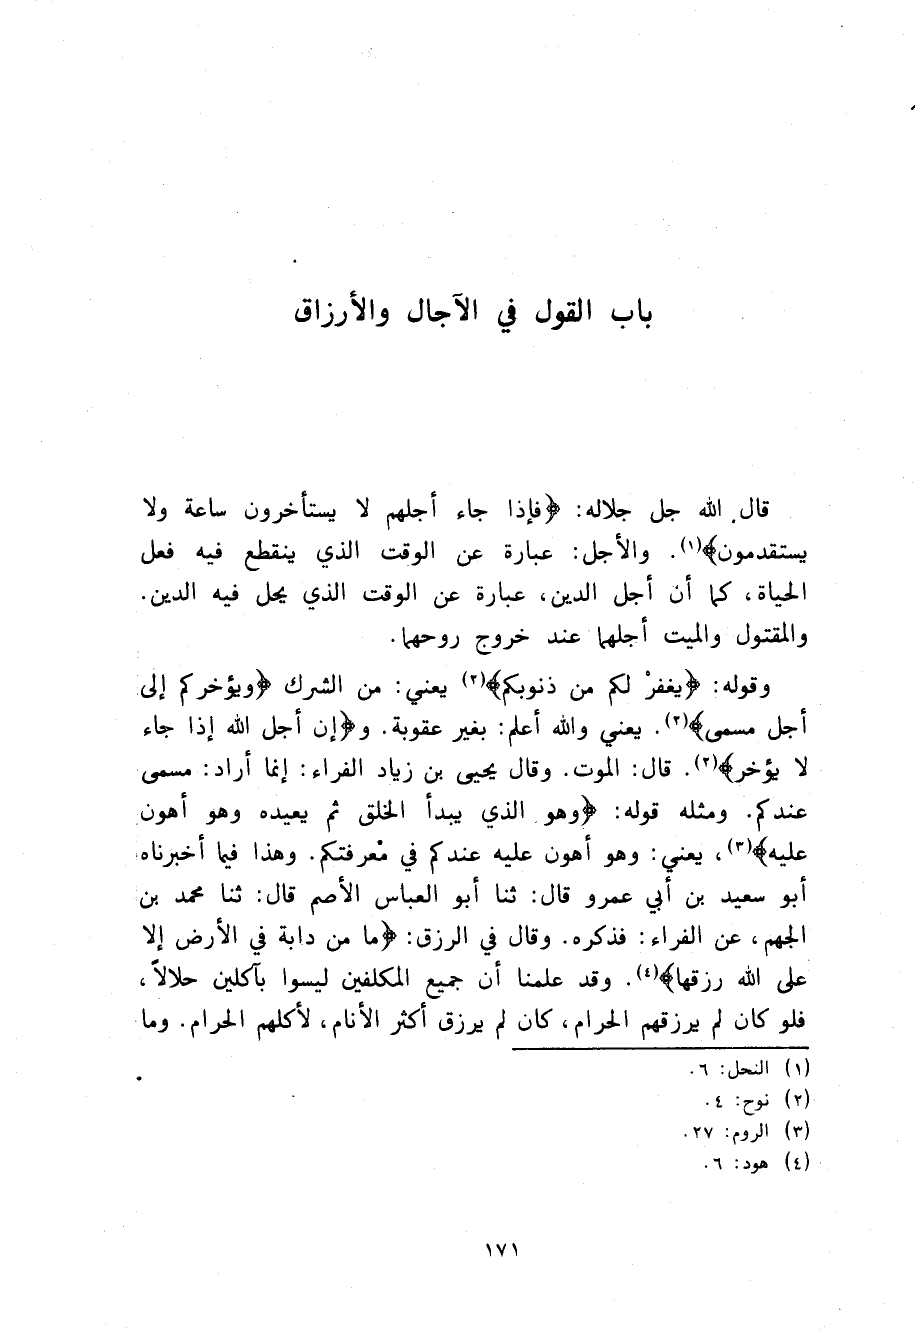 باب القول في الآجال والأرزاق
قال الله جل جلاله: ﴿فإذا جاء أجلهم لا يستأخرون ساعة ولا
يستقدمون﴾(١). والأجل: عبارة عن الوقت الذي ينقطع فيه فعل
الحياة، كما أن أجل الدين، عبارة عن الوقت الذي يحل فيه الدين.
والمقتول والميت أجلهما عند خروج روحهما.
وقوله: ﴿يغفرْ لكم من ذنوبكم﴾(٢) يعني: من الشرك ﴿ويؤخركم إلى
أجل مسمى﴾(٢). يعني والله أعلم: بغير عقوبة. و﴿إن أجل الله إذا جاء
لا يؤخر﴾(٢). قال: الموت. وقال يحيى بن زياد الفراء: إنما أراد: مسمى
عندكم. ومثله قوله: ﴿وهو الذي يبدأ الخلق ثم يعيده وهو أهون
عليه﴾(٣)، يعني: وهو أهون عليه عندكم في معرفتكم. وهذا فيما أخبرناه
أبو سعيد بن أبي عمرو قال: ثنا أبو العباس الأصم قال: ثنا محمد بن
الجهم، عن الفراء: فذكره. وقال في الرزق: ﴿ما من دابة في الأرض إلا
على الله رزقها﴾(٤). وقد علمنا أن جميع المكلفين ليسوا بآكلين حلالاً،
فلو كان لم يرزقهم الحرام، كان لم يرزق أكثر الأنام، لأكلهم الحرام. وما
(١) النحل: ٦.
(٢) نوح: ٤.
(٣) الروم: ٢٧.
(٤) هود: ٦.
١٧١